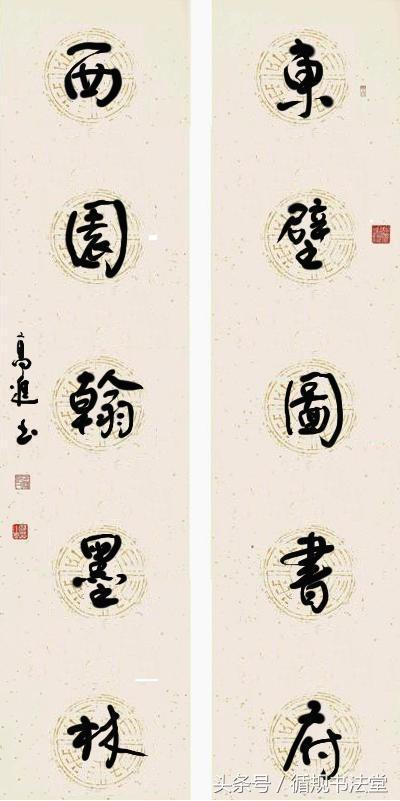 東壁圖書府
西園翰墨林
高進书
头条号 / 循规书法堂